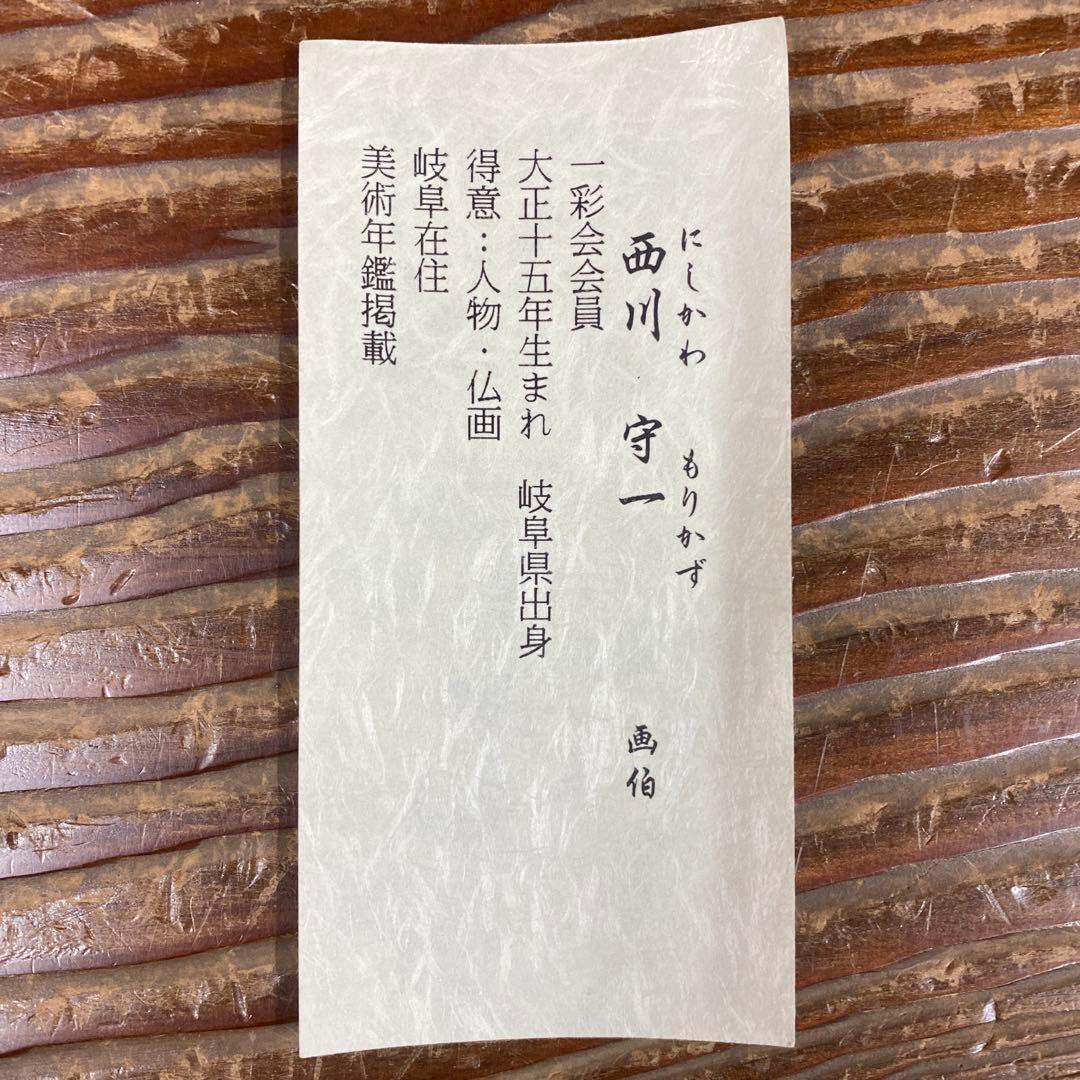 にしかわ　もりかず
西川　守一　画伯
一彩会会員
大正十五年生まれ　岐阜県出身
得意：人物・仏画
岐阜在住
美術年鑑掲載